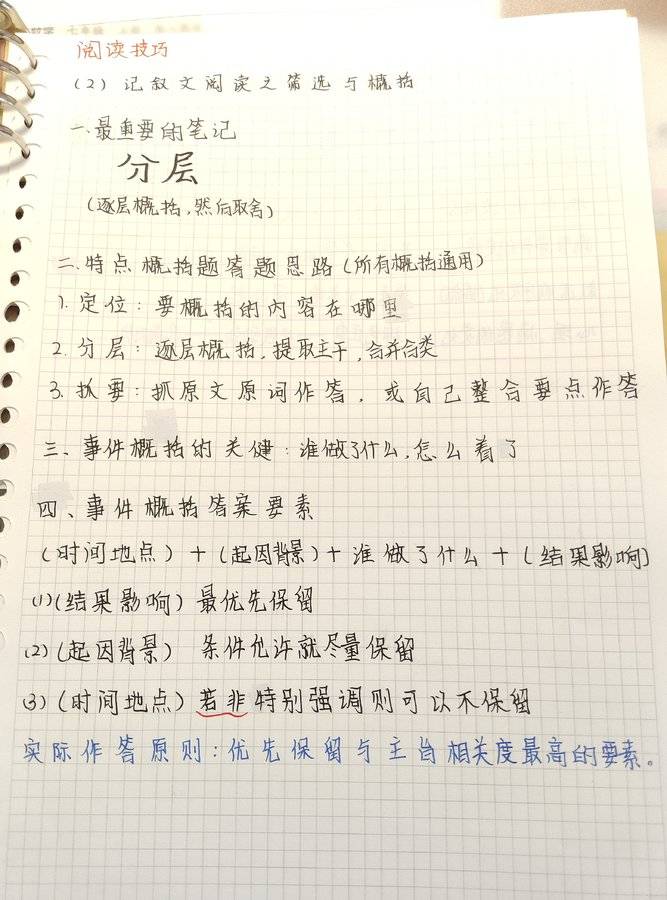 阅读技巧
(2) 记叙文阅读之筛选与概括
一、最重要的笔记
分层
(逐层概括,然后取舍)
二、特点概括题答题思路(所有概括通用)
1. 定位:要概括的内容在哪里
2. 分层:逐层概括,提取主干,合并合类
3. 抓要:抓原文原词作答,或自己整合要点作答
三、事件概括的关键:谁做了什么,怎么着了
四、事件概括答案要素
(时间地点)+(起因背景)+谁做了什么+(结果影响)
(1)(结果影响)最优先保留
(2)(起因背景) 条件允许就尽量保留
(3)(时间地点)若非特别强调则可以不保留
实际作答原则:优先保留与主旨相关度最高的要素。